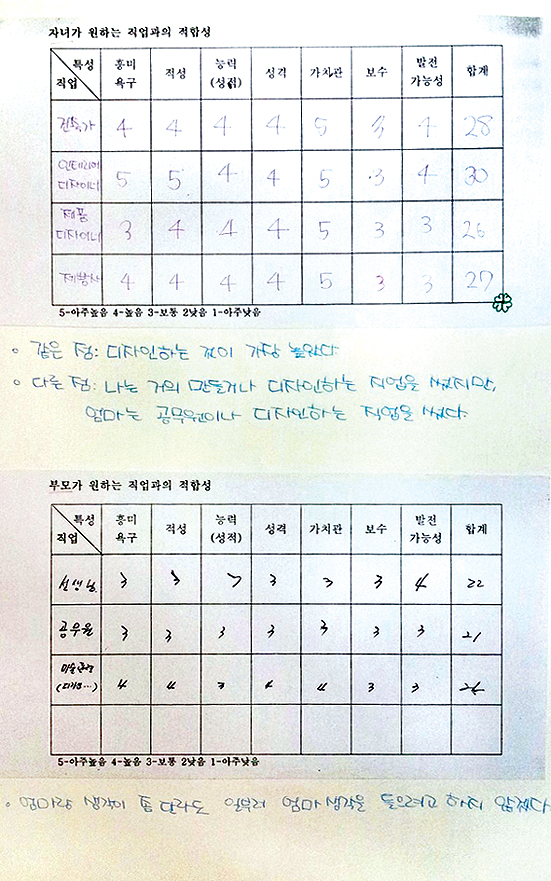 자녀가 원하는 직업과의 적합성
특성 직업 흥미 욕구 적성 능력 (성적) 성격 가치관 보수 발전 가능성 합계
건축가 4 4 4 4 5 3 4 28
인테리어 디자이너 5 5 4 4 5 3 4 30
제품 디자이너 3 4 4 4 5 3 3 26
제빵사 4 4 4 4 5 3 3 27
5-아주높음 4-높음 3-보통 2낮음 1-아주낮음
• 같은 점: 디자인하는 것이 가장 높았다.
• 다른 점: 나는 거의 만들거나 디자인하는 직업을 썼지만,
엄마는 공무원이나 디자인하는 직업을 썼다.
부모가 원하는 직업과의 적합성
특성 직업 흥미 욕구 적성 능력 (성적) 성격 가치관 보수 발전 가능성 합계
선생님 3 3 3 3 3 3 4 22
공무원 3 3 3 3 3 3 3 21
미술 (디자인...) 4 4 3 4 4 3 3
5-아주높음 4-높음 3-보통 2낮음 1-아주낮음
• 엄마랑 생각이 좀 달라도 일부러 엄마 생각을 들으려고 하지 않겠다